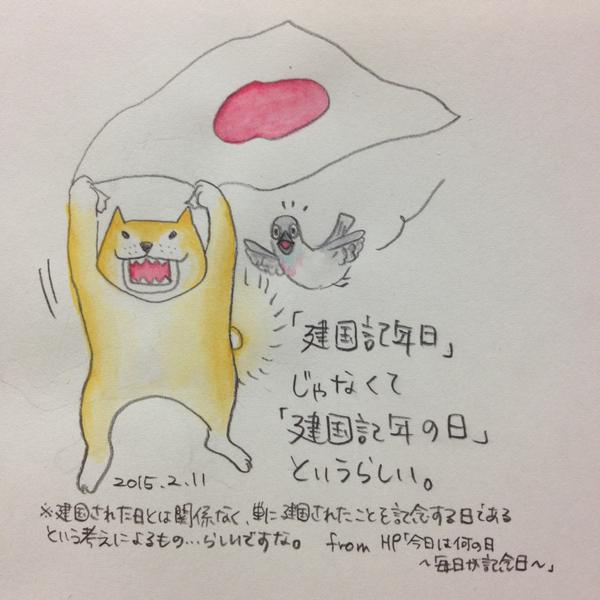 「建国記年日」
じゃなくて
「建国記年の日」
というらしい。
2015.2.11
※建国された日とは関係なく、単に建国されたことを記念する日である
という考えによるもの…らしいですな。 from HP「今日は何の日
～毎日が記念日～」